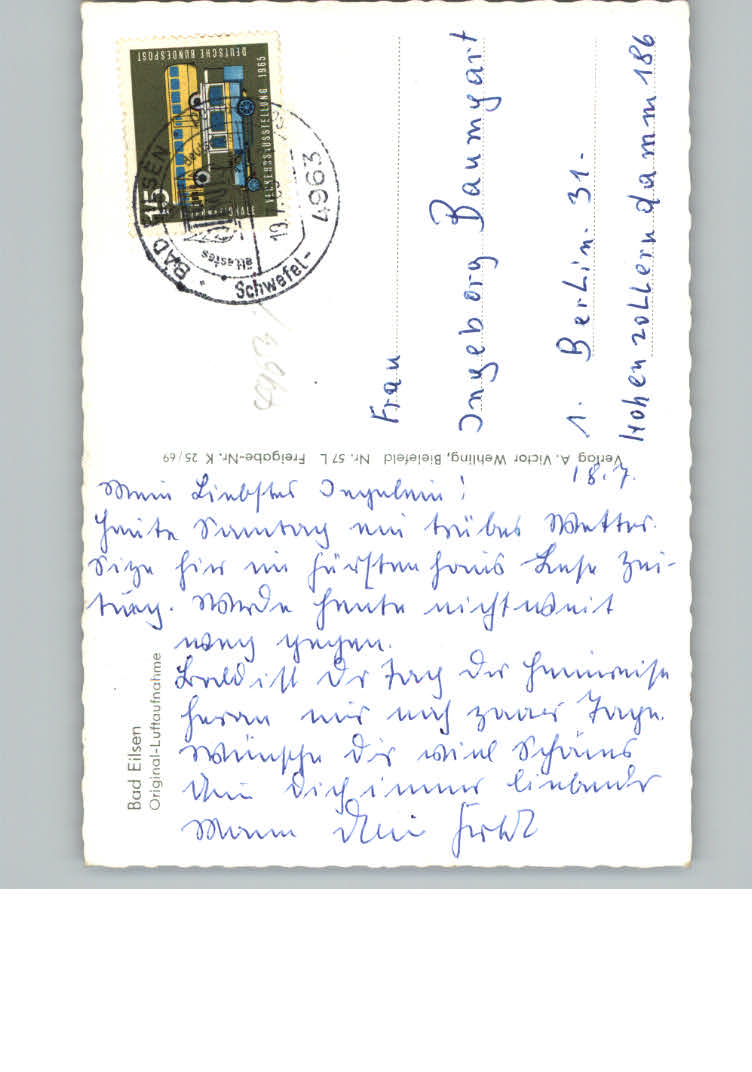 DEUTSCHE BUNDESPOST
VERKEHRSAUSSTELLUNG 1965
15
BAD EILSEN
4963
Schwefel-
Frau
Ingeborg Baumgart
1. Berlin. 31-
Hohenzollerndamm 186
Verlag A. Victor Wehling, Bielefeld Nr. 57 L Freigabe-Nr. K 25/69
18.7.
Mein Liebstes Ingelein!
Heute Sonntag ein trübes Wetter.
Size hier im Fürstenhaus Lese Zei-
tung. Werde heute nicht weit
weg gehen.
Bald ist der Tag der Heimreise
heran nur noch zwei Tage.
Wünsche Dir viel Schönes
Dein Dich immer liebender
Mann Dein
Bad Eilsen
Original-Luftaufnahme